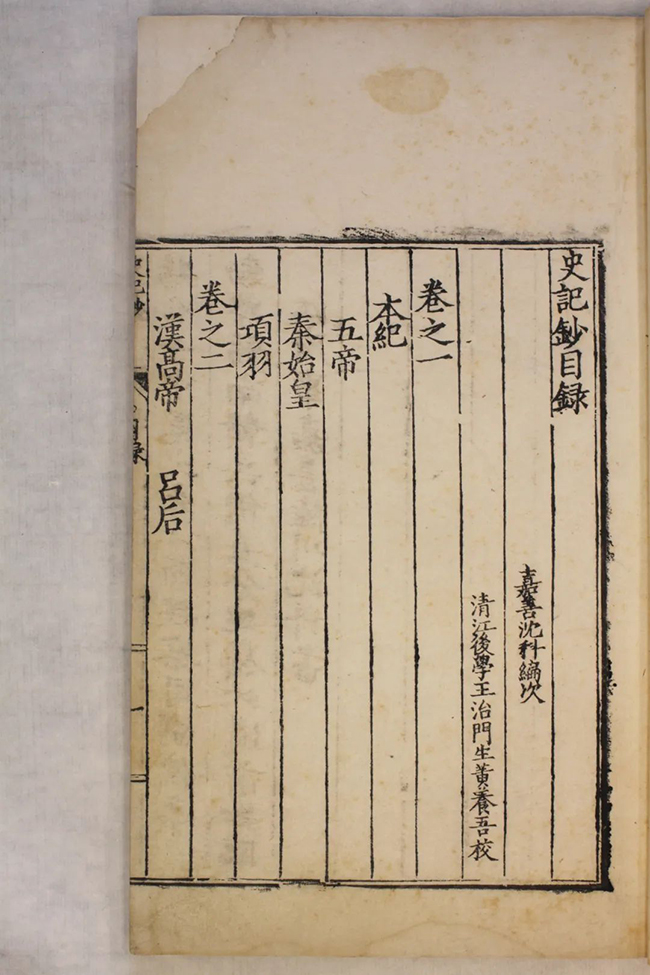 史記鈔目録
嘉善沈科編次
清江後學王治門生黄養吾校
卷之一
本紀
五帝
秦始皇
項羽
卷之二
漢高帝 呂后
史記鈔
目録